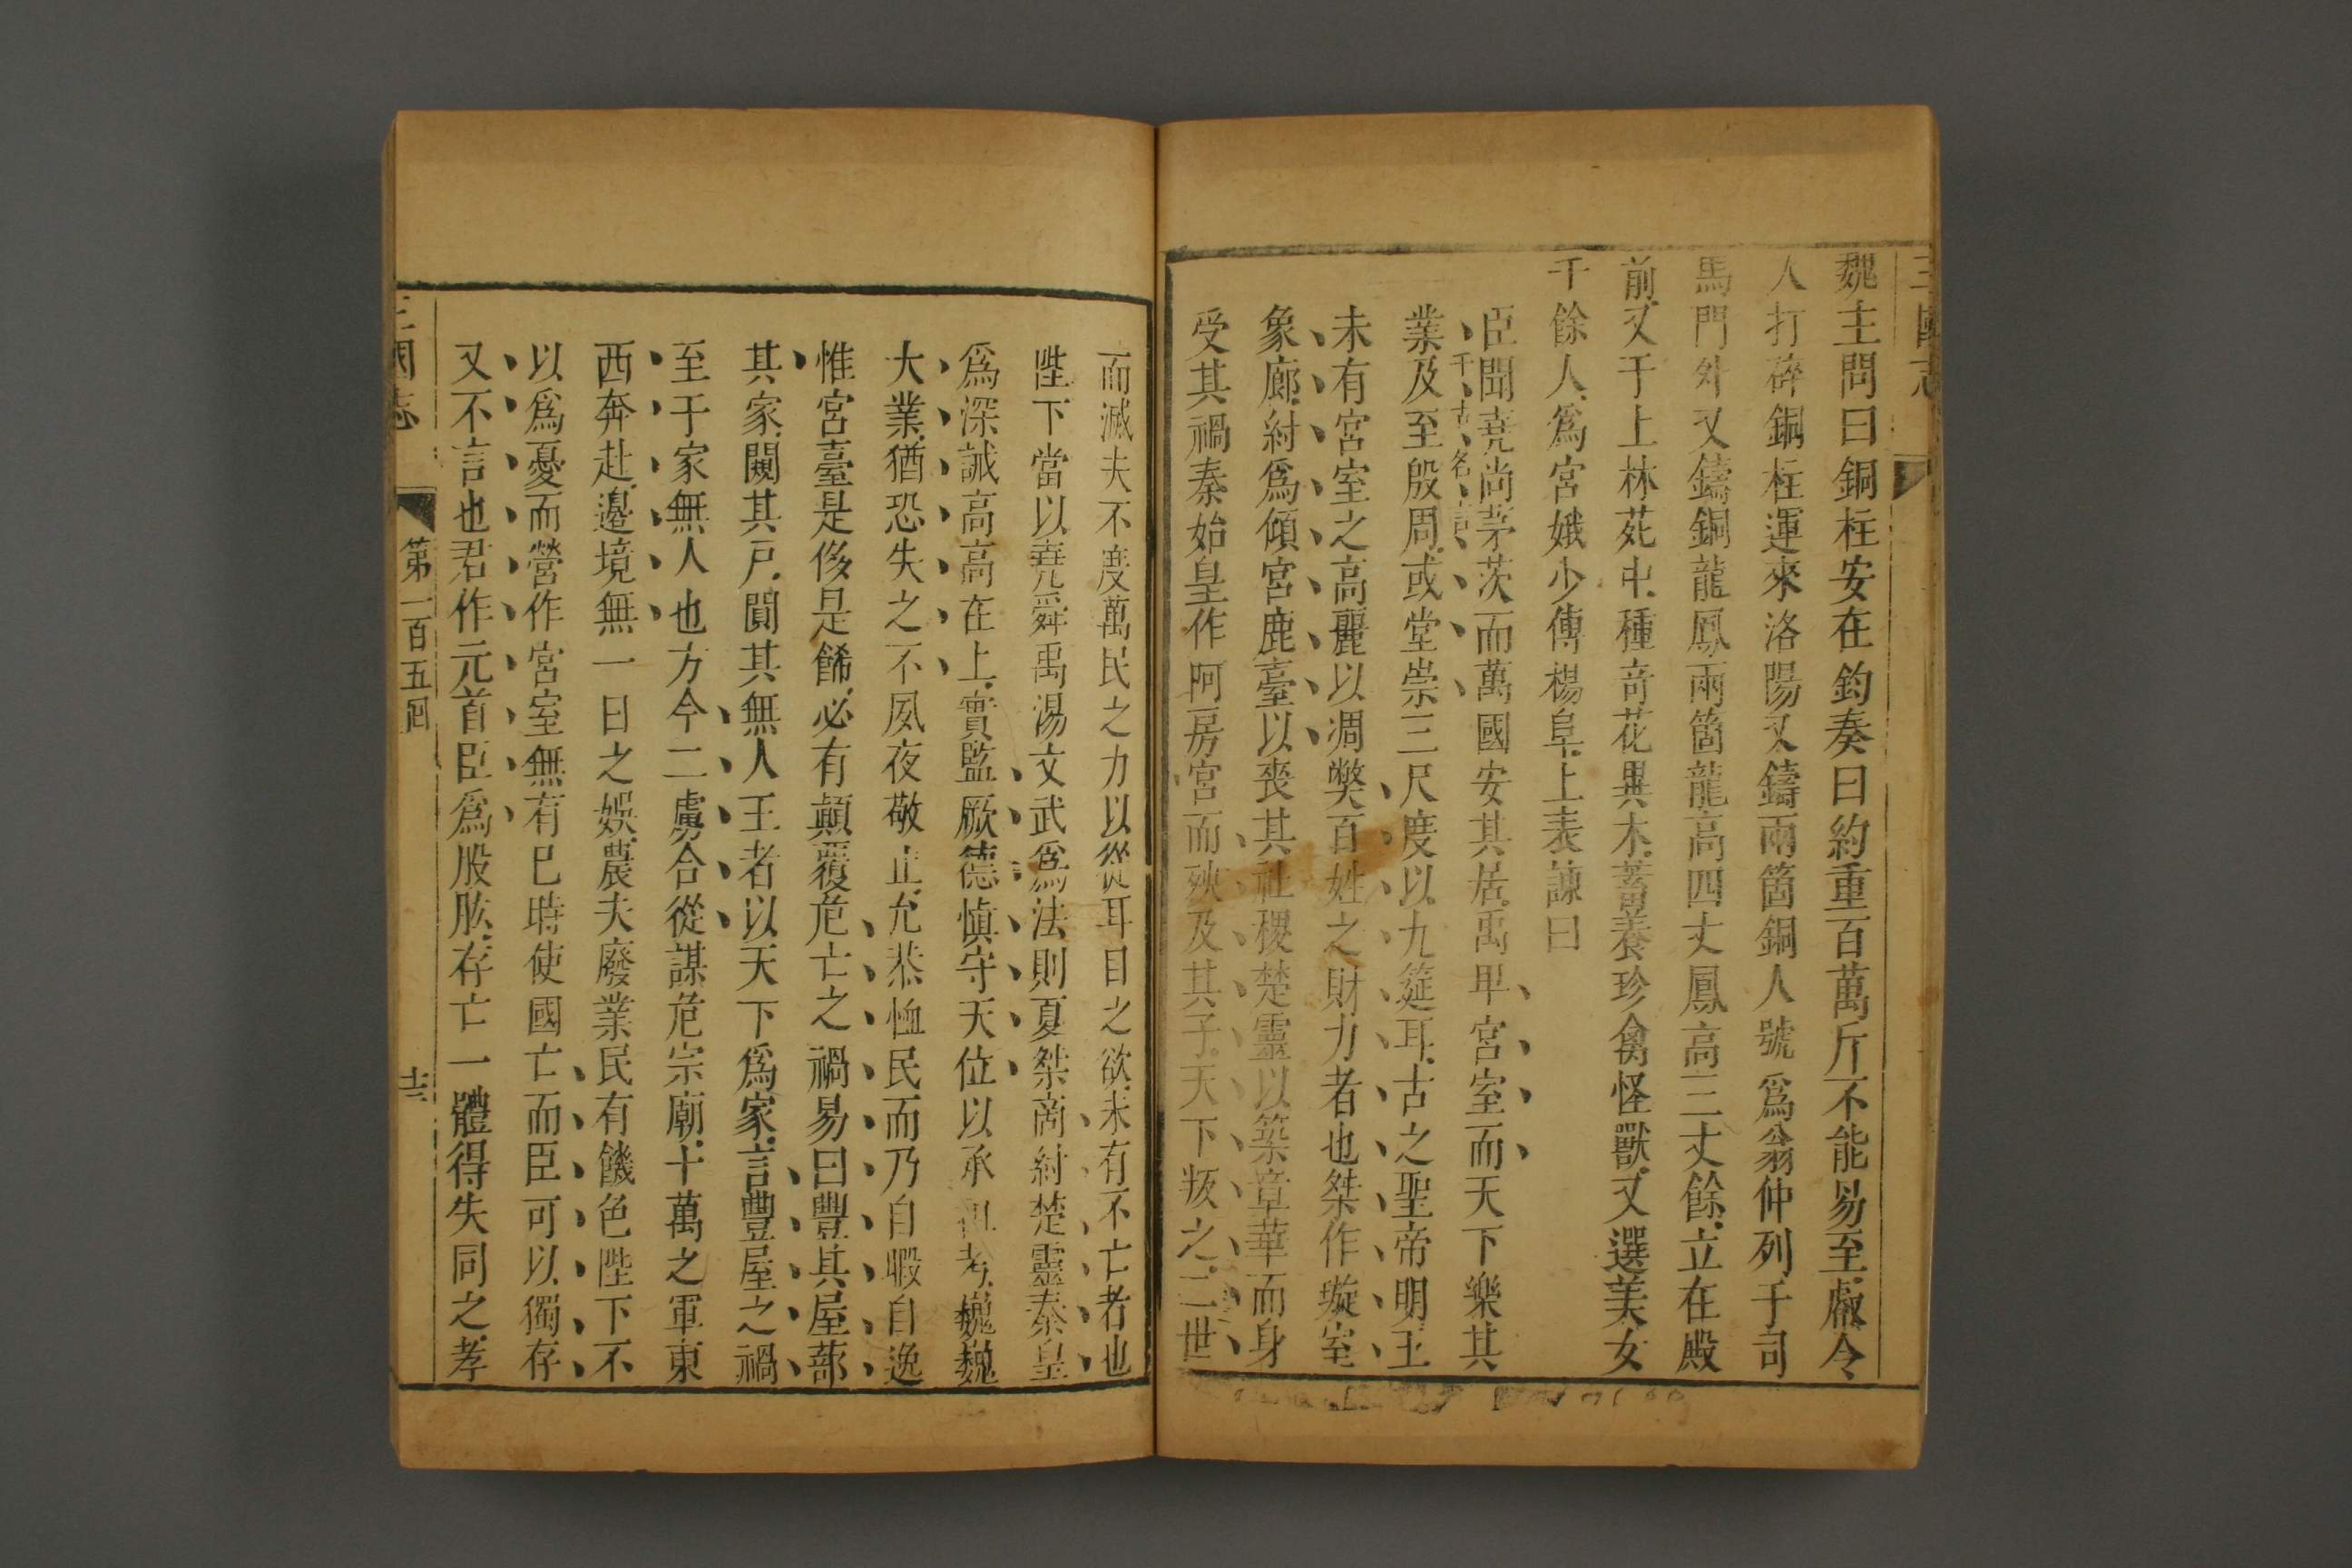 三國志
魏主問曰銅柱安在鈞奏曰約重百萬斤不能易至叡令
人打碎銅柱運來洛陽又鑄兩箇銅人號爲翁仲列于司
馬門外又鑄銅龍鳳兩箇龍高四丈鳳高三丈餘立在殿
前又于上林苑中種奇花異木蓄養珍禽怪獸又選美女
千餘人爲宮娥少傅楊阜上表諫曰
臣聞堯尚茅茨而萬國安其居禹卑宮室而天下樂其
千古名言
業及至殷周或堂崇三尺度以九筵耳古之聖帝明王
未有宮室之高麗以凋獘百姓之財力者也桀作璇室
象廊紂爲傾宮鹿臺以喪其社稷楚靈以築章華而身
受其禍秦始皇作阿房宮而殃及其子天下叛之二世
而滅夫不度萬民之力以從耳目之欲未有不亡者也
陛下當以堯舜禹湯文武爲法則夏桀商紂楚靈秦皇
爲深誡高高在上實監厥德慎守天位以承祖考巍巍
大業猶恐失之不夙夜敬止允恭恤民而乃自暇自逸
惟宮臺是侈是餙必有顛覆危亡之禍易曰豐其屋蔀
其家闚其戸閴其無人王者以天下爲家言豐屋之禍
至于家無人也方今二虜合從謀危宗廟十萬之軍東
西奔赴邉境無一日之娛農夫廢業民有饑色陛下不
以爲憂而營作宮室無有巳時使國亡而臣可以獨存
又不言也君作元首臣爲股肱存亡一體得失同之孝
三國志
第一百五囘
十二